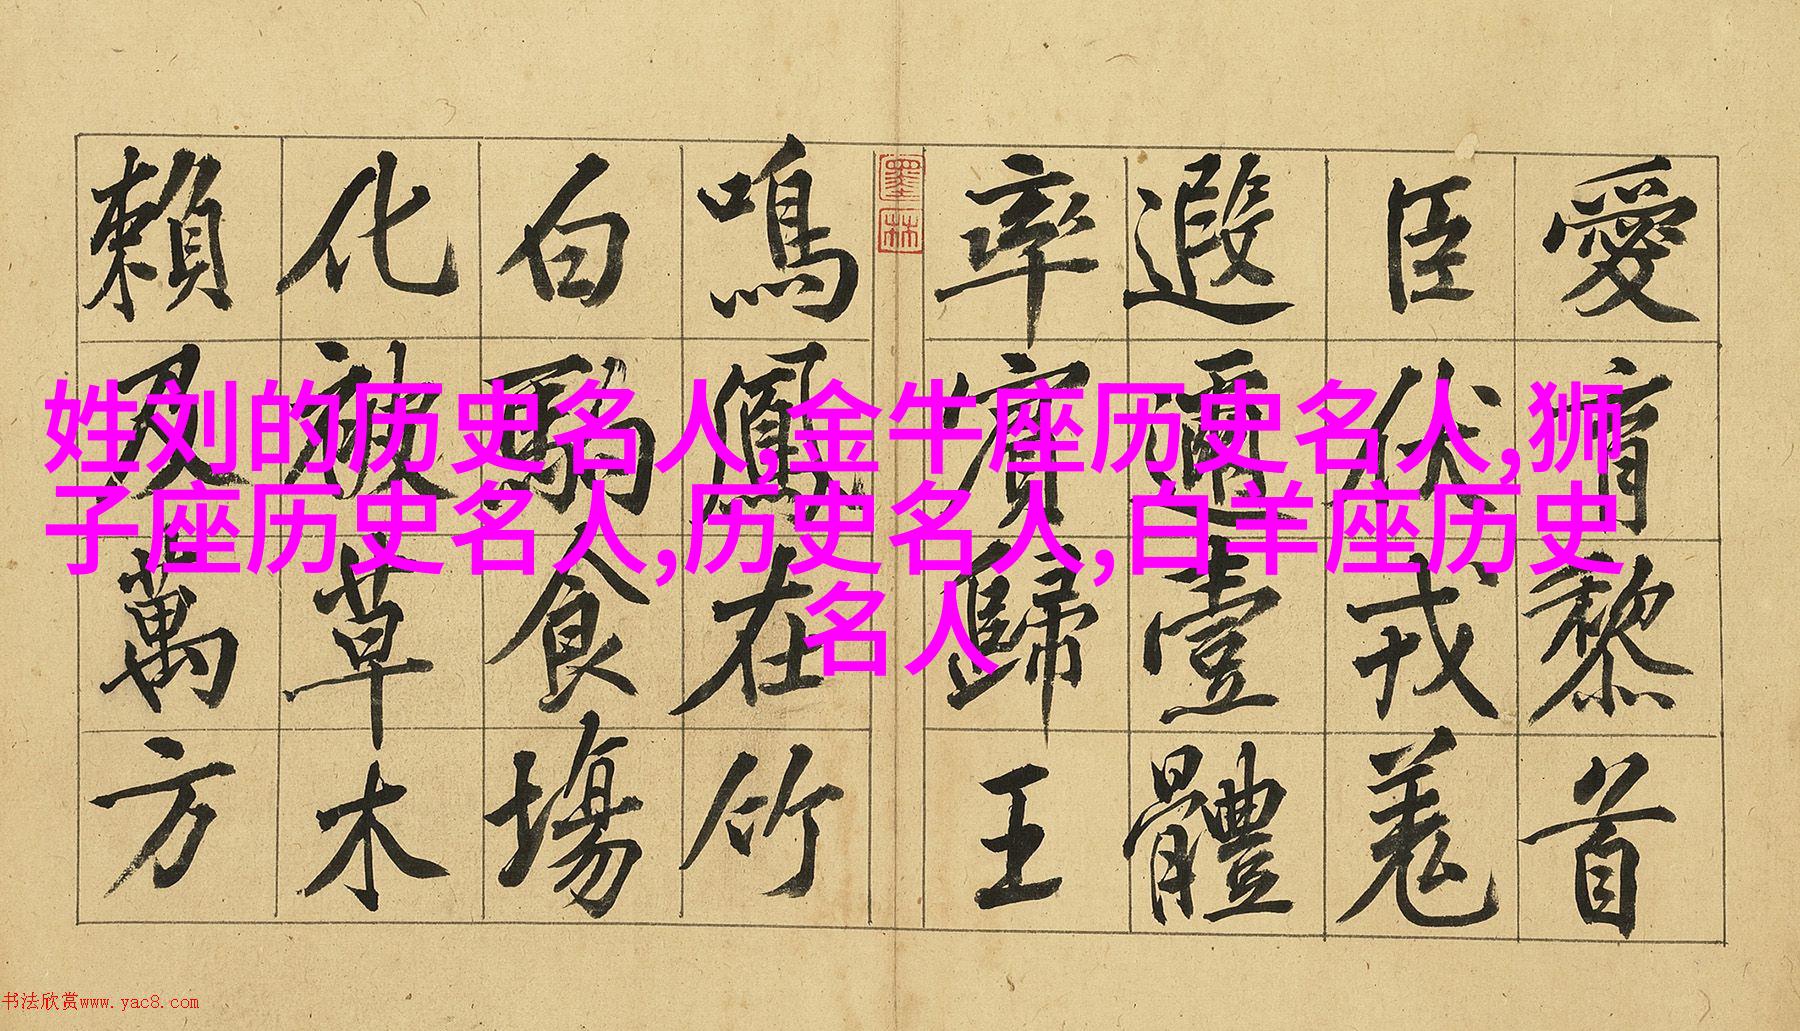 愛育黎首
臣伏戎羌
遐邇壹體
率賓歸王
墨林
鳴鳳在竹
白駒食場
化被草木
賴及萬方
姓刘的历史名人,金牛座历史名人,狮
子座历史名人,历史名人,白羊座历史
名人
书法欣赏www.yac8.com